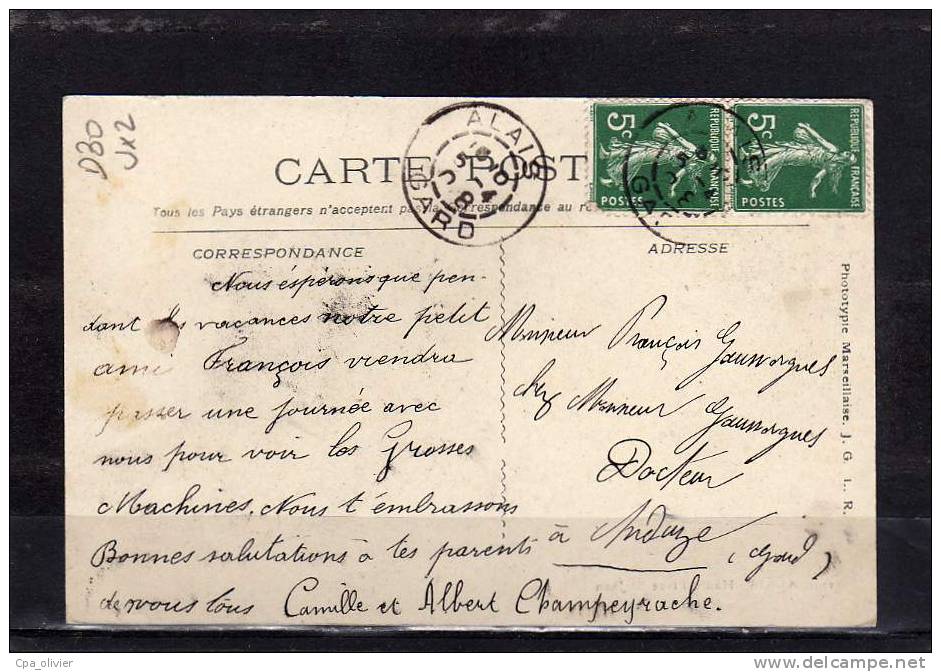 D30
Jx2
CARTE POST
ALAIS
GARD
5c
RÉPUBLIQUE FRANÇAISE
POSTES
5c
RÉPUBLIQUE FRANÇAISE
POSTES
Tous les Pays étrangers n'acceptent pas la Correspondance au
CORRESPONDANCE
Nous espérons que pen-
dant les vacances notre petit
ami François viendra
passer une journée avec
nous pour voir les Grosses
Machines. Nous t'embrassons
Bonnes salutations à tes parents
de nous tous Camille et Albert Champeyrache.
ADRESSE
Monsieur François Gaussorgues
chez Monsieur Gaussorgues
Docteur
à Anduze
(Gard)
Phototypie Marseillaise. J. G. L. R.
Cpa_olivier
www.delcampe.net